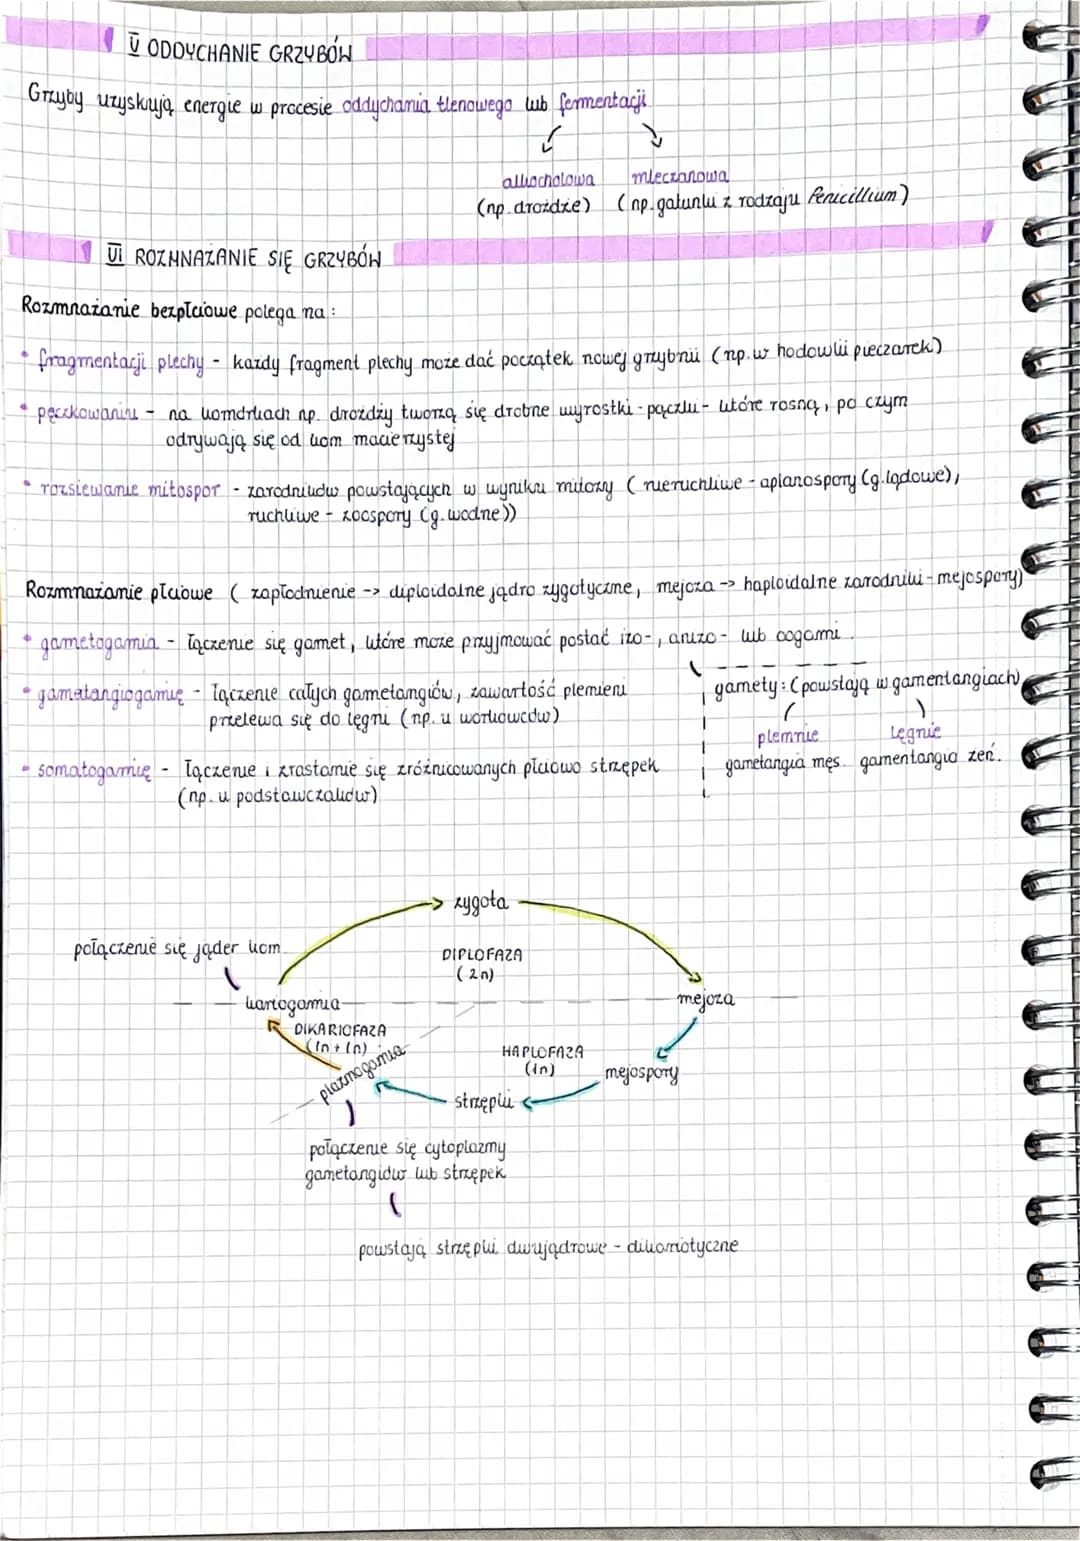 V ODDYCHANIE GRZYBÓW
Grzyby uzyskują energię w procesie oddychania tlenowego lub fermentacji
alkocholowa mleczanowa
(np. drożdże) (np. gatunki z rodzaju Penicillium)
VI ROZMNAŻANIE SIĘ GRZYBÓW
Rozmnażanie bezpłciowe polega na:
• fragmentacji plechy - każdy fragment plechy może dać początek nowej grzybnii (np. w hodowlii pieczarek)
• pączkowaniu - na komórkach np. drożdży tworzą się drobne wyrostki - pączki - które rosną, po czym
odrywają się od kom macierzystej
• rozsiewanie mitospor - zarodników powstających w wyniku mitozy (nieruchliwe - aplanospory (g.lądowe),
ruchliwe - zoospory (g. wodne))
Rozmnażanie płciowe (zapłodnienie -> diploidalne jądro zygotyczne, mejoza -> haploidalne zarodniki - mejospory)
• gametogamia - łączenie się gamet, które może przyjmować postać izo-, anizo- lub oogami.
gamety: (powstają w gamentangiach)
• gamatangiogamię - łączenie całych gametangiów, zawartość plemieni
przelewa się do lęgni (np. u workowców)
plemnie lęgnie
gametangia męs. gamentangia żeń.
• somatogamię - łączenie i zrastanie się zróżnicowanych płciowo strzępek
(np. u podstawczaków)
zygota
połączenie się jąder kom.
DIPLOFAZA
(2n)
kariogamia
mejoza
DIKARIOFAZA
(1n + 1n)
plazmogamia
HAPLOFAZA
(1n)
mejospory
strzępki
połączenie się cytoplazmy
gametangidów lub strzępek
powstają strzępki dwujądrowe - dikariotyczne